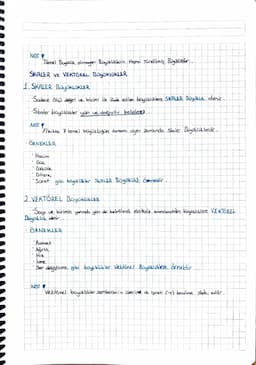 NOT :
Temel Büyüklük olmayan Büyüklüklerin Hepsi Türetilmiş Büyüklüktür.
SKALER ve VEKTÖREL BÜYÜKLÜKLER
1. SKALER BÜYÜKLÜKLER
Sadece sayı değeri ve birim ile ifade edilen büyüklüklere SKALER Büyüklük denir.
Skaler büyüklükler yön ve doğrultu belirtmez.
NOT :
Fizikte 7 temel büyüklüğün tamamı aynı zamanda Skaler Büyüklüktür.
ÖRNEKLER
Hacim
Güç
Özkütle
Sürat gibi büyüklükler SKALER Büyüklük Örneğidir.
2. VEKTÖREL BÜYÜKLÜKLER
Sayı ve birimin yanında yön de belirtilerek büyüklüklere VEKTÖREL
Büyüklük denir.
ÖRNEKLER
Kuvvet
Ağırlık
Hız
İvme
Yer değiştirme gibi büyüklükler Vektörel Büyüklüklere Örnektir.
NOT :
Vektörel büyüklükler sembolünün üzerine ok işareti (→) konulur.